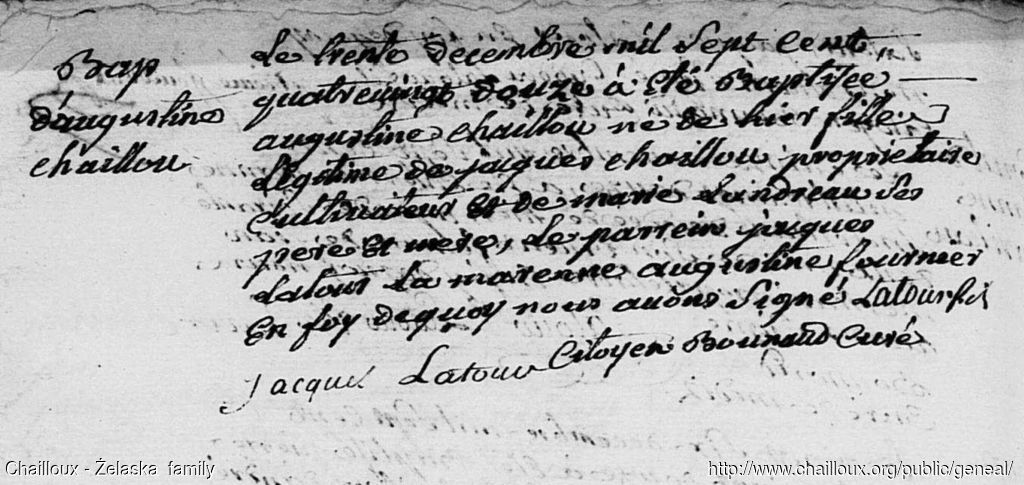 Bap
d'augustine
chaillou
Le trente decembre mil sept cent
quatrevingt douze à été Baptisée
augustine chaillou né de hier fille
Légitime de jaques chaillou proprietaire
Cultivateur et de marie Landreau ses
pere et mere, Le parrein jaques
Latour La marenne augustine fournier
En foy dequoy nous avons signé Latour
Jacques Latour Citoyen Bounaud Curé
Chailloux - Żelaska family
http://www.chailloux.org/public/geneal/